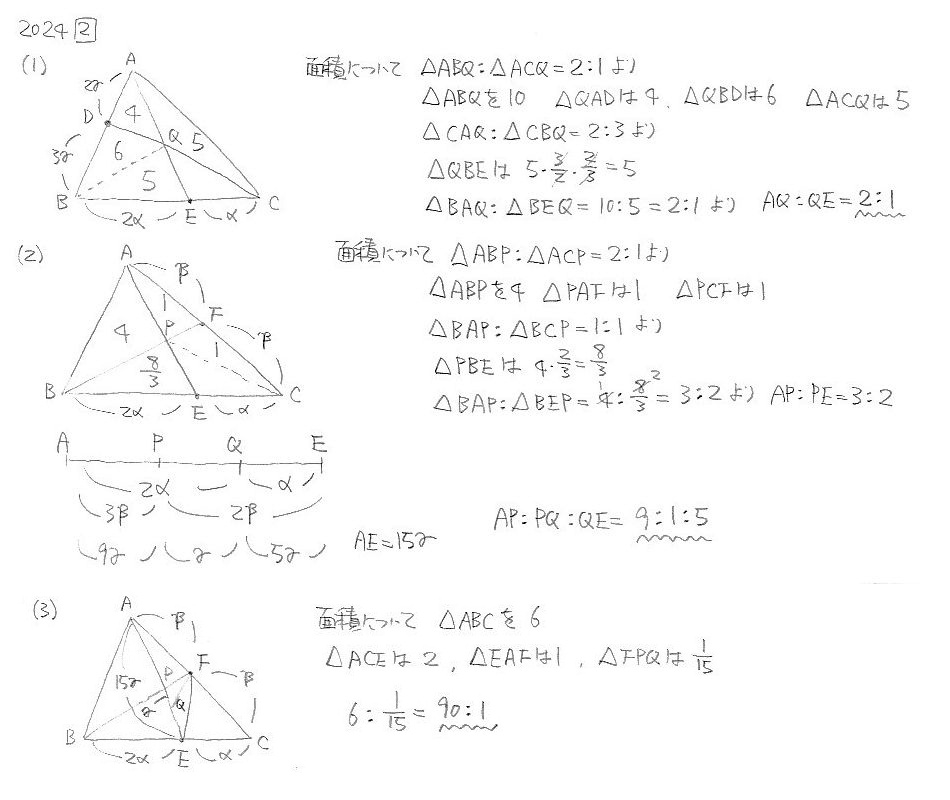 2024 2
(1)
A
2γ
D
3γ
4
6
Q
5
5
B
2α
E
α
C
面積について △ABQ:△ACQ=2:1より
△ABQを10 △QADは4、△QBDは6 △ACQは5
△CAQ:△CBQ=2:3より
△QBEは 5・3/2・2/3=5
△BAQ:△BEQ=10:5=2:1より AQ:QE=2:1
(2)
A
β
1
F
4
P
1
β
8/3
B
2α
E
α
C
面積について △ABP:△ACP=2:1より
△ABPを4 △PAFは1 △PCFは1
△BAP:△BCP=1:1より
△PBEは 4・2/3=8/3
△BAP:△BEP=4:8/3=3:2より AP:PE=3:2
A P Q E
2α α
3β 2β
9γ γ 5γ AE=15γ
AP:PQ:QE=9:1:5
(3)
A
β
F
P
15γ
γ
Q
β
B
2α
E
α
C
面積について △ABCを6
△ACEは2、△EAFは1、△FPQは1/15
6:1/15=90:1